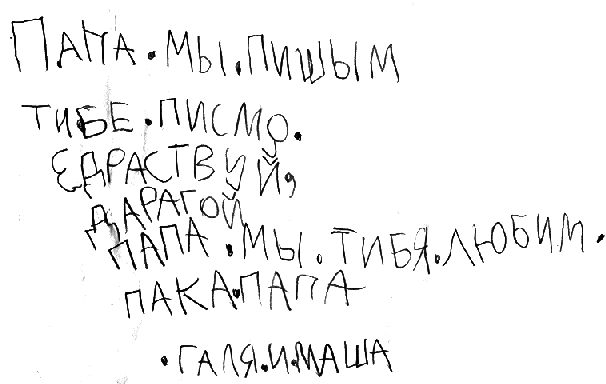 ПАПА.МЫ.ПИШЫМ
ТИБЕ.ПИСМО.
ЕДРАСТВУЙ,
ДАРАГОЙ
ПАПА.МЫ.ТИБЯ.ЛЮБИМ.
ПАКА.ПАПА
.ГАЛЯ.И.МАША